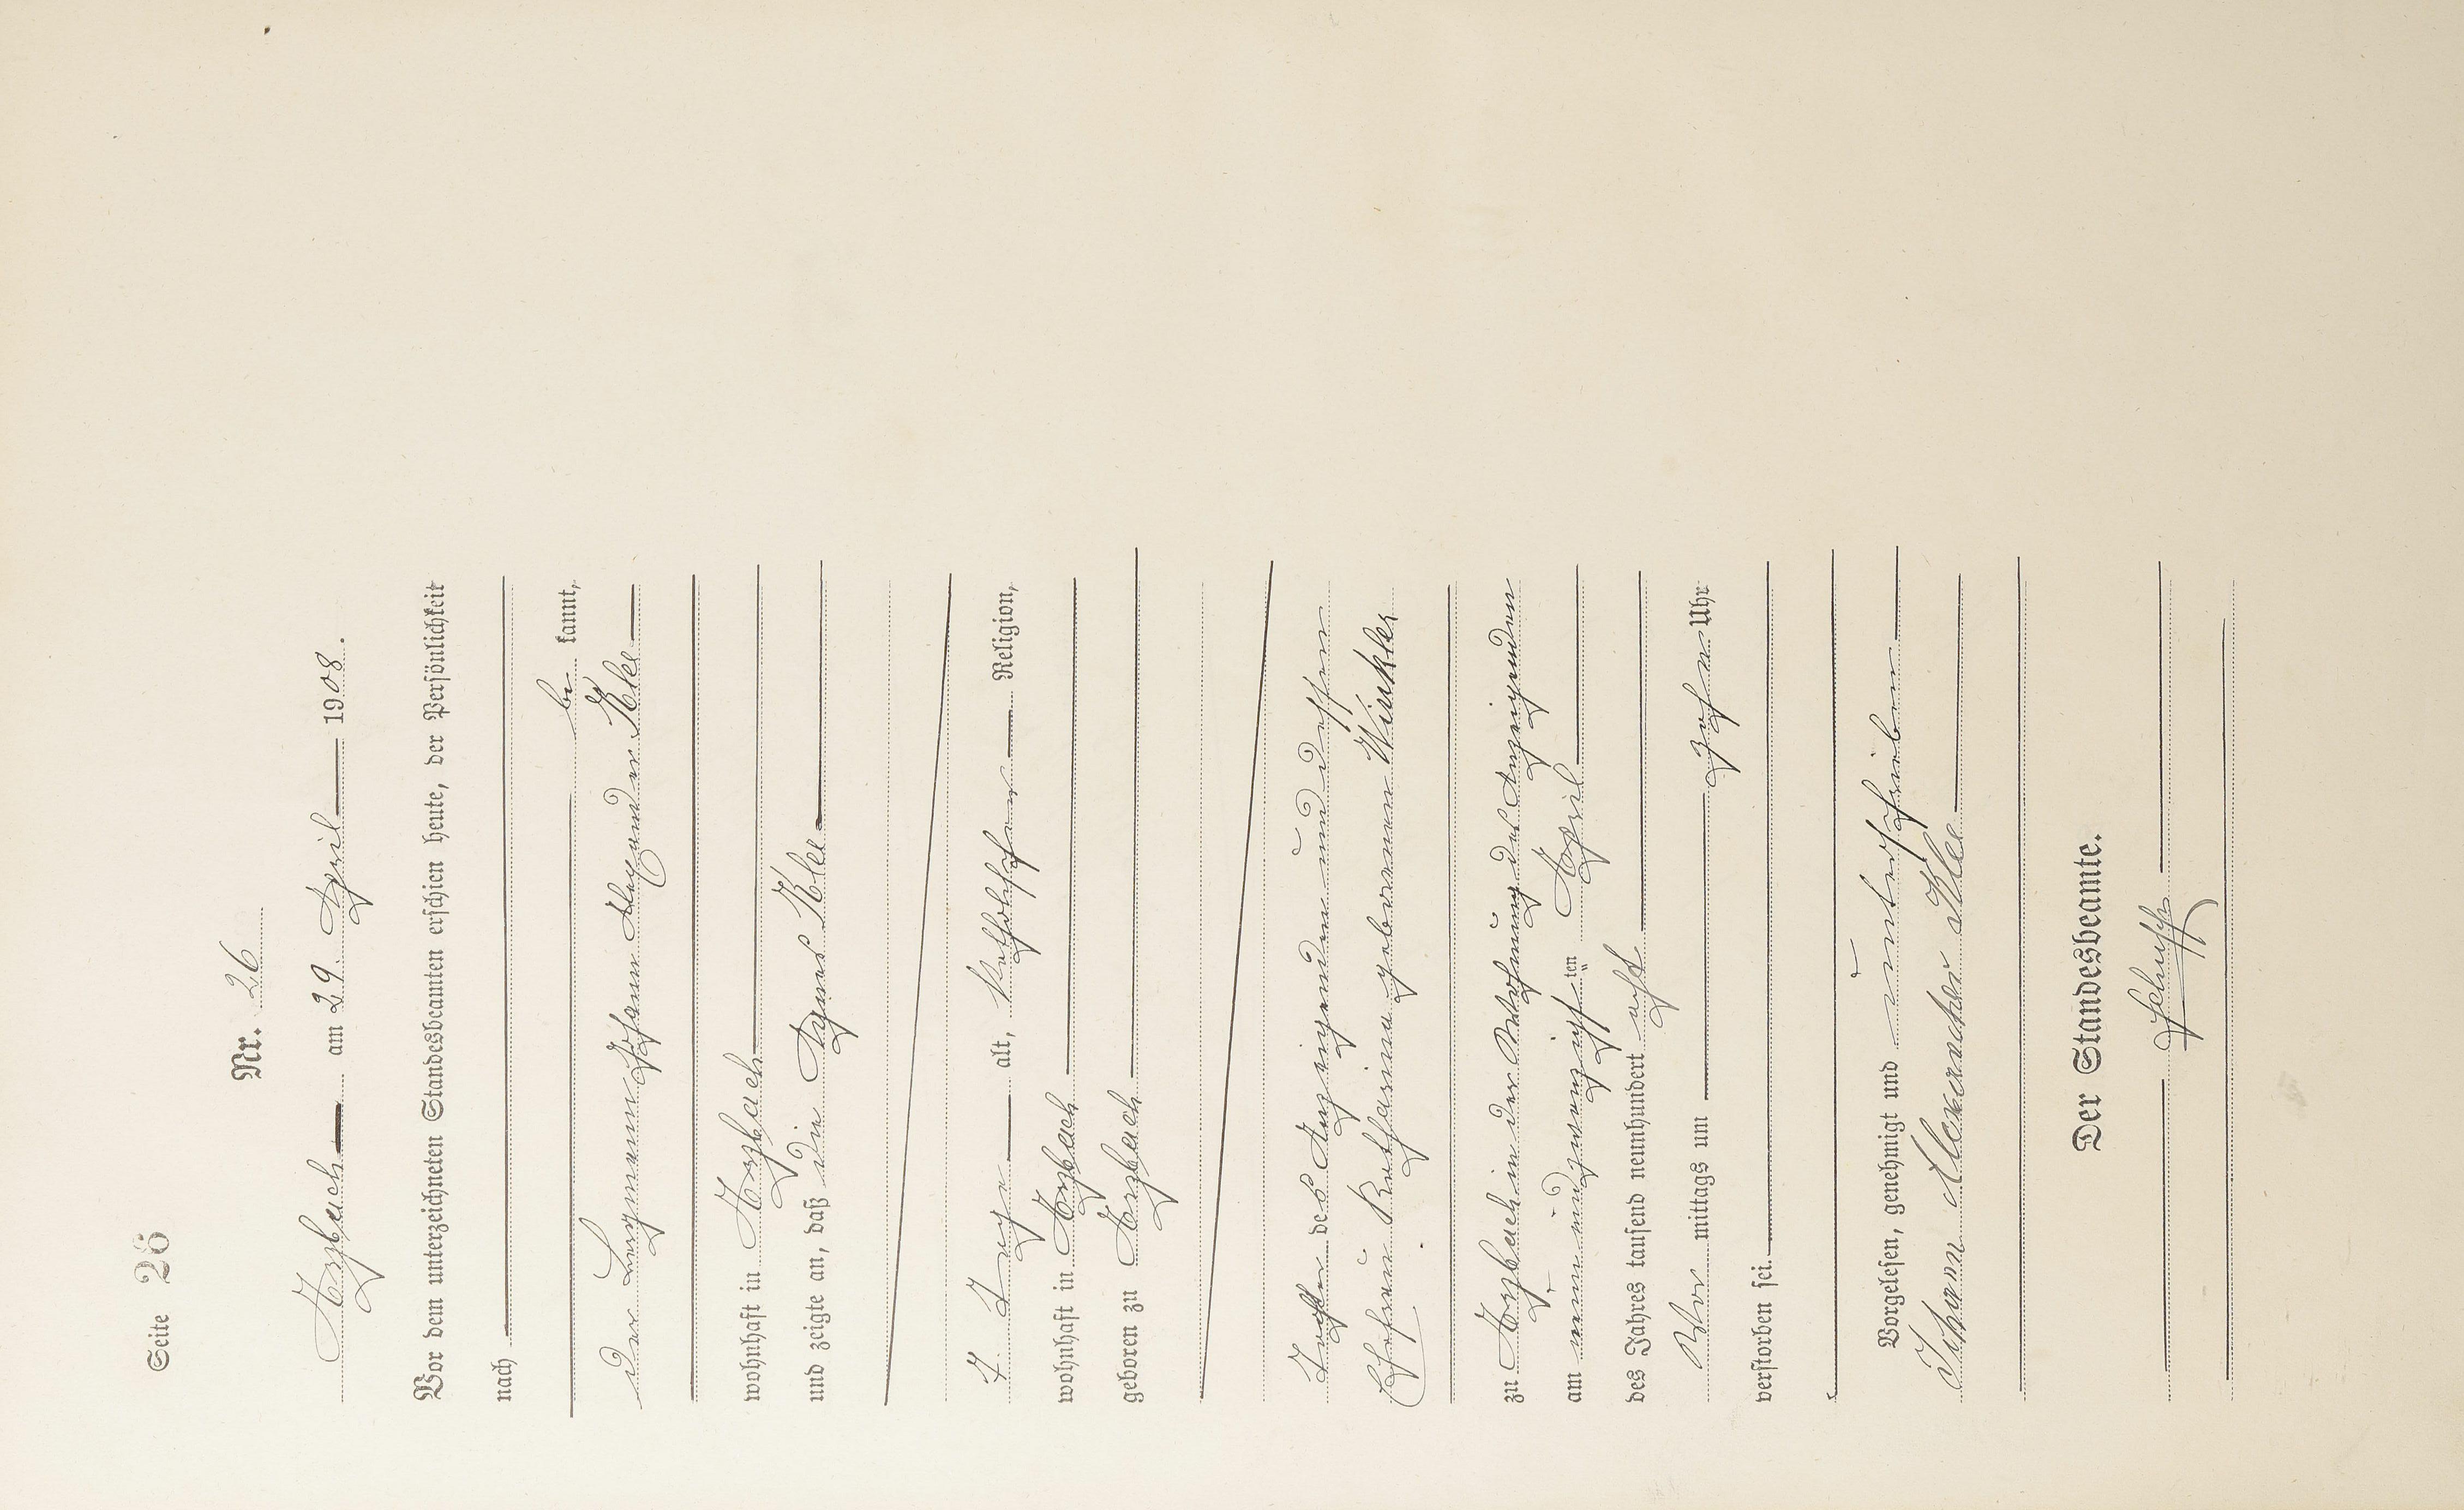 Seite 26
Nr. 26
Atzbach am 29. April 1908.
Vor dem unterzeichneten Standesbeamten erschien heute, der Persönlichkeit
nach
be kannt,
der Bergmann Johann Alexander Klee
wohnhaft in Atzbach
und zeigte an, daß die Agnes Klee
7 Tage alt, katholischer Religion,
wohnhaft in Atzbach
geboren zu Atzbach
Tochter des Anzeigenden und dessen
Ehefrau Katharina geborenen Winkler
zu Atzbach in der Wohnung des Anzeigenden
am neunundzwanzigsten April
des Jahres tausend neunhundert acht
Vor mittags um zehn Uhr
verstorben sei.
Vorgelesen, genehmigt und unterschrieben
Johann Alexander Klee
Der Standesbeamte.